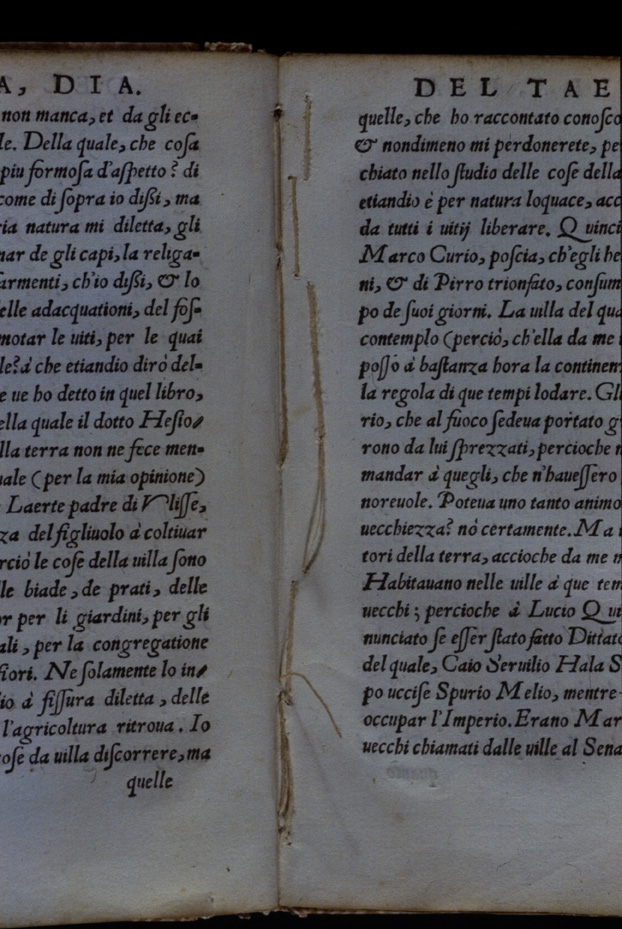 A, DIA.
non manca, et da gli ec-
le. Della quale, che cosa
piu formosa d'aspetto? di
come di sopra io dißi, ma
ria natura mi diletta, gli
nar de gli capi, la religa-
sarmenti, ch'io dißi, & lo
elle adacquationi, del fos-
motar le uiti, per le quai
le? à che etiandio dirò del-
e ue ho detto in quel libro,
ella quale il dotto Hesio/
lla terra non ne fece men-
uale (per la mia opinione)
Laerte padre di Vlisse,
za del figliuolo à coltiuar
rciò le cose della uilla sono
lle biade, de prati, delle
or per li giardini, per gli
ali, per la congregatione
fiori. Ne solamente lo in/
io à fissura diletta, delle
l'agricoltura ritroua. Io
cose da uilla discorrere, ma
quelle
DEL TAE
quelle, che ho raccontato conosco
& nondimeno mi perdonerete, pe
chiato nello studio delle cose della
etiandio è per natura loquace, acc
da tutti i uitij liberare. Quinci
Marco Curio, poscia, ch'egli he
ni, & di Pirro trionfato, consum
po de suoi giorni. La uilla del qua
contemplo (perciò, ch'ella da me
posso à bastanza hora la continen
la regola di que tempi lodare. Gl
rio, che al fuoco sedeua portato g
rono da lui sprezzati, percioche
mandar à quegli, che n'hauessero
noreuole. Poteua uno tanto animo
uecchiezza? nò certamente. Ma
tori della terra, accioche da me
Habitauano nelle uille à que tem
uecchi; percioche à Lucio Qui
nunciato se esser stato fatto Dittato
del quale, Caio Seruilio Hala S
po uccise Spurio Melio, mentre
occupar l'Imperio. Erano Mar
uecchi chiamati dalle uille al Sena